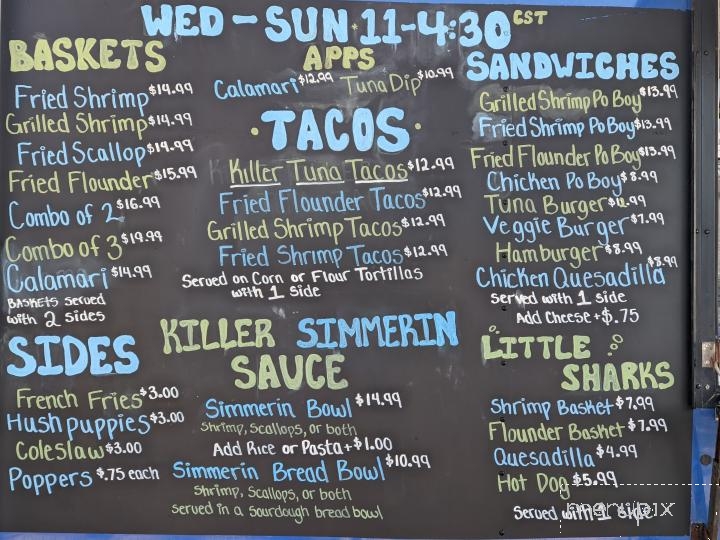 WED - SUN 11-4:30 CST
BASKETS
Fried Shrimp $14.99
Grilled Shrimp $14.99
Fried Scallop $14.99
Fried Flounder $15.99
Combo of 2 $16.99
Combo of 3 $19.99
Calamari $14.99
BASKETS served
with 2 sides
SIDES
French Fries $3.00
Hush puppies $3.00
Coleslaw $3.00
Poppers $.75 each
APPS
Calamari $12.99 Tuna Dip $10.99
TACOS
Killer Tuna Tacos $12.99
Fried Flounder Tacos $12.99
Grilled Shrimp Tacos $12.99
Fried Shrimp Tacos $12.99
Served on Corn or Flour Tortillas
with 1 side
KILLER SIMMERIN
SAUCE
Simmerin Bowl $14.99
Shrimp, Scallops, or both
Add Rice or Pasta +$1.00
Simmerin Bread Bowl $10.99
Shrimp, Scallops, or both
served in a sourdough bread bowl
SANDWICHES
Grilled Shrimp Po Boy $13.99
Fried Shrimp Po Boy $13.99
Fried Flounder Po Boy $13.99
Chicken Po Boy $8.99
Tuna Burger
Veggie Burger $7.99
Hamburger $8.99
Chicken Quesadilla $8.99
served with 1 side
Add Cheese +$.75
LITTLE
SHARKS
Shrimp Basket $7.99
Flounder Basket $7.99
Quesadilla $4.99
Hot Dog $5.99
Served with 1 side
menupix